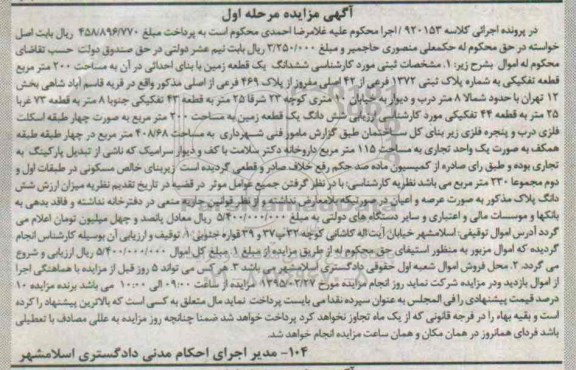 آگهی مزایده مرحله اول
در پرونده اجرائی کلاسه ۹۲۰۱۵۳ / اجرا محکوم علیه غلامرضا احمدی محکوم است به پرداخت مبلغ ۴۵۸/۸۹۶/۷۷۰ ریال بابت اصل
خواسته در حق محکوم له حکمعلی منصوری حاجمیر و مبلغ ۲/۲۵۰/۰۰۰ ریال بابت نیم عشر دولتی در حق صندوق دولت حسب تقاضای
محکوم له اموال بشرح زیر: ۱. مشخصات ثبتی مورد کارشناسی ششدانگ یک قطعه زمین با بنای احداثی در آن به مساحت ۲۰۰ متر مربع
قطعه تفکیکی به شماره پلاک ثبتی ۱۳۷۲ فرعی از ۴۲ اصلی مفروز از پلاک ۴۶۹ فرعی از اصلی مذکور واقع در قریه قاسم آباد شاهی بخش
۱۲ تهران با حدود شمالا ۸ متر درب و دیوار به خیابان ۱۰ متری کوچه ۲۳ شرقا ۲۵ متر به قطعه ۴۳ تفکیکی جنوبا ۸ متر به قطعه ۷۳ غربا
۲۵ متر به قطعه ۴۴ تفکیکی مورد کارشناسی ارزیابی شش دانگ یک قطعه زمین به مساحت ۲۰۰ متر مربع به صورت چهار طبقه اسکلت
فلزی درب و پنجره فلزی زیر بنای کل ساختمان طبق گزارش مامور فنی شهرداری به مساحت ۴۰۸/۶۸ متر مربع در چهار طبقه طبقه
همکف به صورت یک واحد تجاری به مساحت ۱۱۵ متر مربع داروخانه دکتر سلامت با کف و دیوار سرامیک که ناشی از تبدیل پارکینگ به
تجاری بوده و طبق رای صادره از کمیسیون ماده صد حکم رفع خلاف صادر و قطعی گردیده است زیربنای خالص مسکونی در طبقات اول و
دوم مجموعا ۲۳۰ متر مربع می باشد نظریه کارشناسی: با در نظر گرفتن جمیع عوامل موثر در قضیه در تاریخ تقدیم نظریه میزان ارزش شش
دانگ پلاک مذکور به صورت عرصه و اعیان در صورتیکه بلامعارض نداشته و از نظر قوانین جاریه منعی در دفترخانه نداشته و فاقد بدهی به
بانکها و موسسات مالی و اعتباری و سایر دستگاه های دولتی به مبلغ ۵/۴۰۰/۰۰۰/۰۰۰ ریال معادل پانصد و چهل میلیون تومان اعلام می
گردد آدرس اموال توقیفی: اسلامشهر خیابان آیت اله کاشانی کوچه ۲۳ پ ۳۷ و ۳۹ قواره جنوبی ۱. توقیف و ارزیابی آن بوسیله کارشناس انجام
گردیده که اموال مزبور به منظور استیفای حق محکوم له از طریق مزایده از مبلغ ۱. مبلغ کل اموال ۵/۴۰۰/۰۰۰/۰۰۰ ریال ارزیابی و شروع
می گردد. ۲. محل فروش اموال شعبه اول حقوقی دادگستری اسلامشهر می باشد ۳. هر کس می تواند ۵ روز قبل از مزایده با هماهنگی اجرا
از اموال بازدید ودر مزایده شرکت نماید روز انجام مزایده مورخ ۱۳۹۵/۰۲/۲۷ مزایده از ساعت ۰۹:۰۰ الی ۱۰:۰۰ می باشد برنده مزایده ۱۰
درصد قیمت پیشنهادی را فی المجلس به عنوان سپرده نقدا می بایست پرداخت نماید مال متعلق به کسی است که بالاترین پیشنهاد را کرده
است و بقیه بهاء را در فرجه قانونی که از یک ماه تجاوز نخواهد کرد پرداخت خواهد شد ضمنا چنانچه روز مزایده به عللی مصادف با تعطیلی
باشد فردای همانروز در همان مکان و همان ساعت مزایده انجام خواهد شد.
۱۰۴- مدیر اجرای احکام مدنی دادگستری اسلامشهر